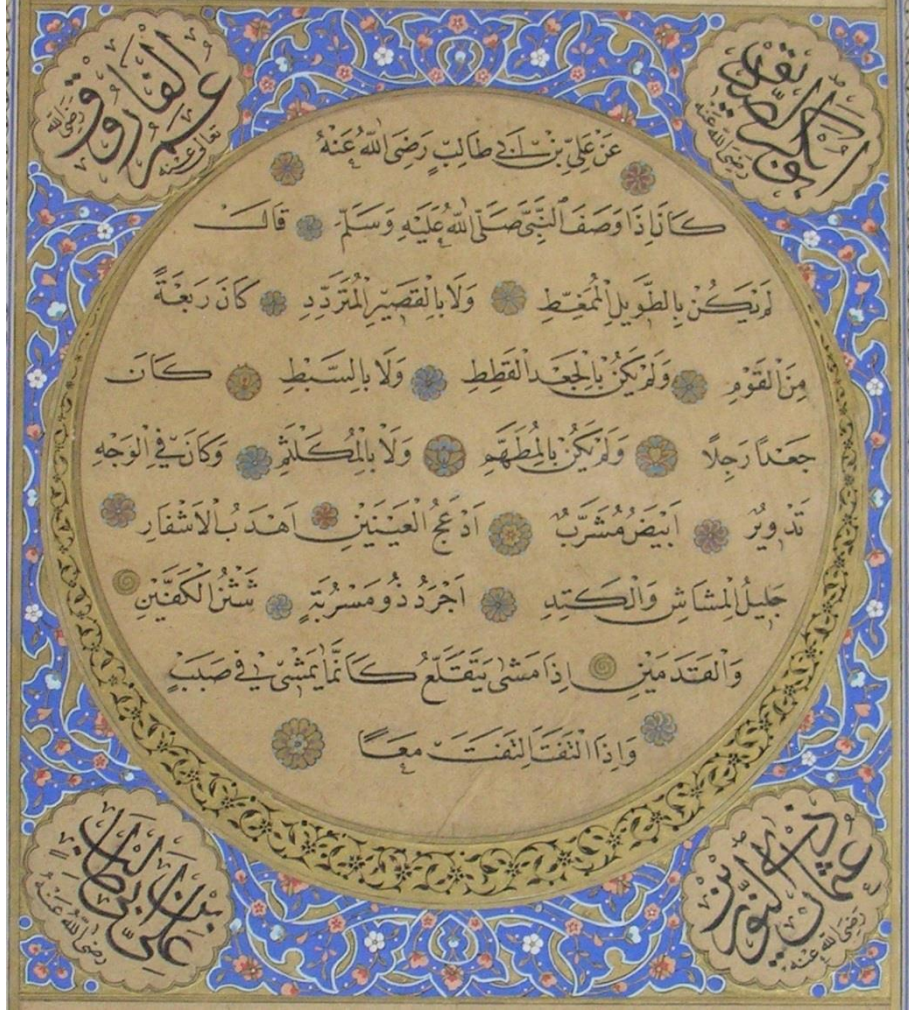 ابو بكر الصديق رضي الله عنه
عمر الفاروق رضي الله تعالى عنه
عَنْ عَلِيِّ بْنِ اَبِي طَالِبٍ رَضِيَ اللهُ عَنْهُ
كَانَ اِذَا وَصَفَ النَّبِيَّ صَلَّى اللهُ عَلَيْهِ وَسَلَّمَ قَالَ
لَمْ يَكُنْ بِالطَّوِيلِ الْمُمَغَّطِ وَلَا بِالْقَصِيرِ الْمُتَرَدِّدِ كَانَ رَبْعَةً
مِنَ الْقَوْمِ وَلَمْ يَكُنْ بِالْجَعْدِ الْقَطَطِ وَلَا بِالسَّبْطِ كَانَ
جَعْدًا رَجِلًا وَلَمْ يَكُنْ بِالْمُطَهَّمِ وَلَا بِالْمُكَلْثَمِ وَكَانَ فِي الْوَجْهِ
تَدْوِيرٌ اَبْيَضُ مُشَرَّبٌ اَدْعَجُ الْعَيْنَيْنِ اَهْدَبُ الْاَشْفَارِ
جَلِيلُ الْمُشَاشِ وَالْكَتِدِ اَجْرَدُ ذُو مَسْرُبَةٍ شَثْنُ الْكَفَّيْنِ
وَالْقَدَمَيْنِ اِذَا مَشَى يَتَقَلَّعُ كَاَنَّمَا يَمْشِي فِي صَبَبٍ
وَاِذَا الْتَفَتَ الْتَفَتَ مَعًا
عثمان ذي النورين رضي الله عنه
علي بن ابي طالب رضي الله عنه